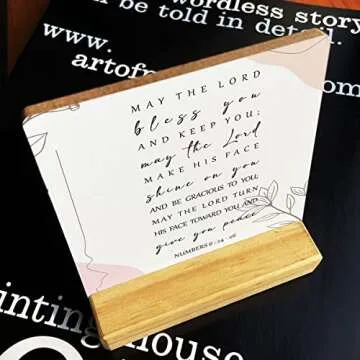 wordless story
be told in detail.
www.
artof
om
MAY THE LORD
bless you
AND KEEP YOU;
may the Lord
MAKE HIS FACE
shine on you
AND BE GRACIOUS TO YOU
MAY THE LORD TURN
HIS FACE TOWARD YOU AND
give you peace
NUMBERS 6:24-26
inting house